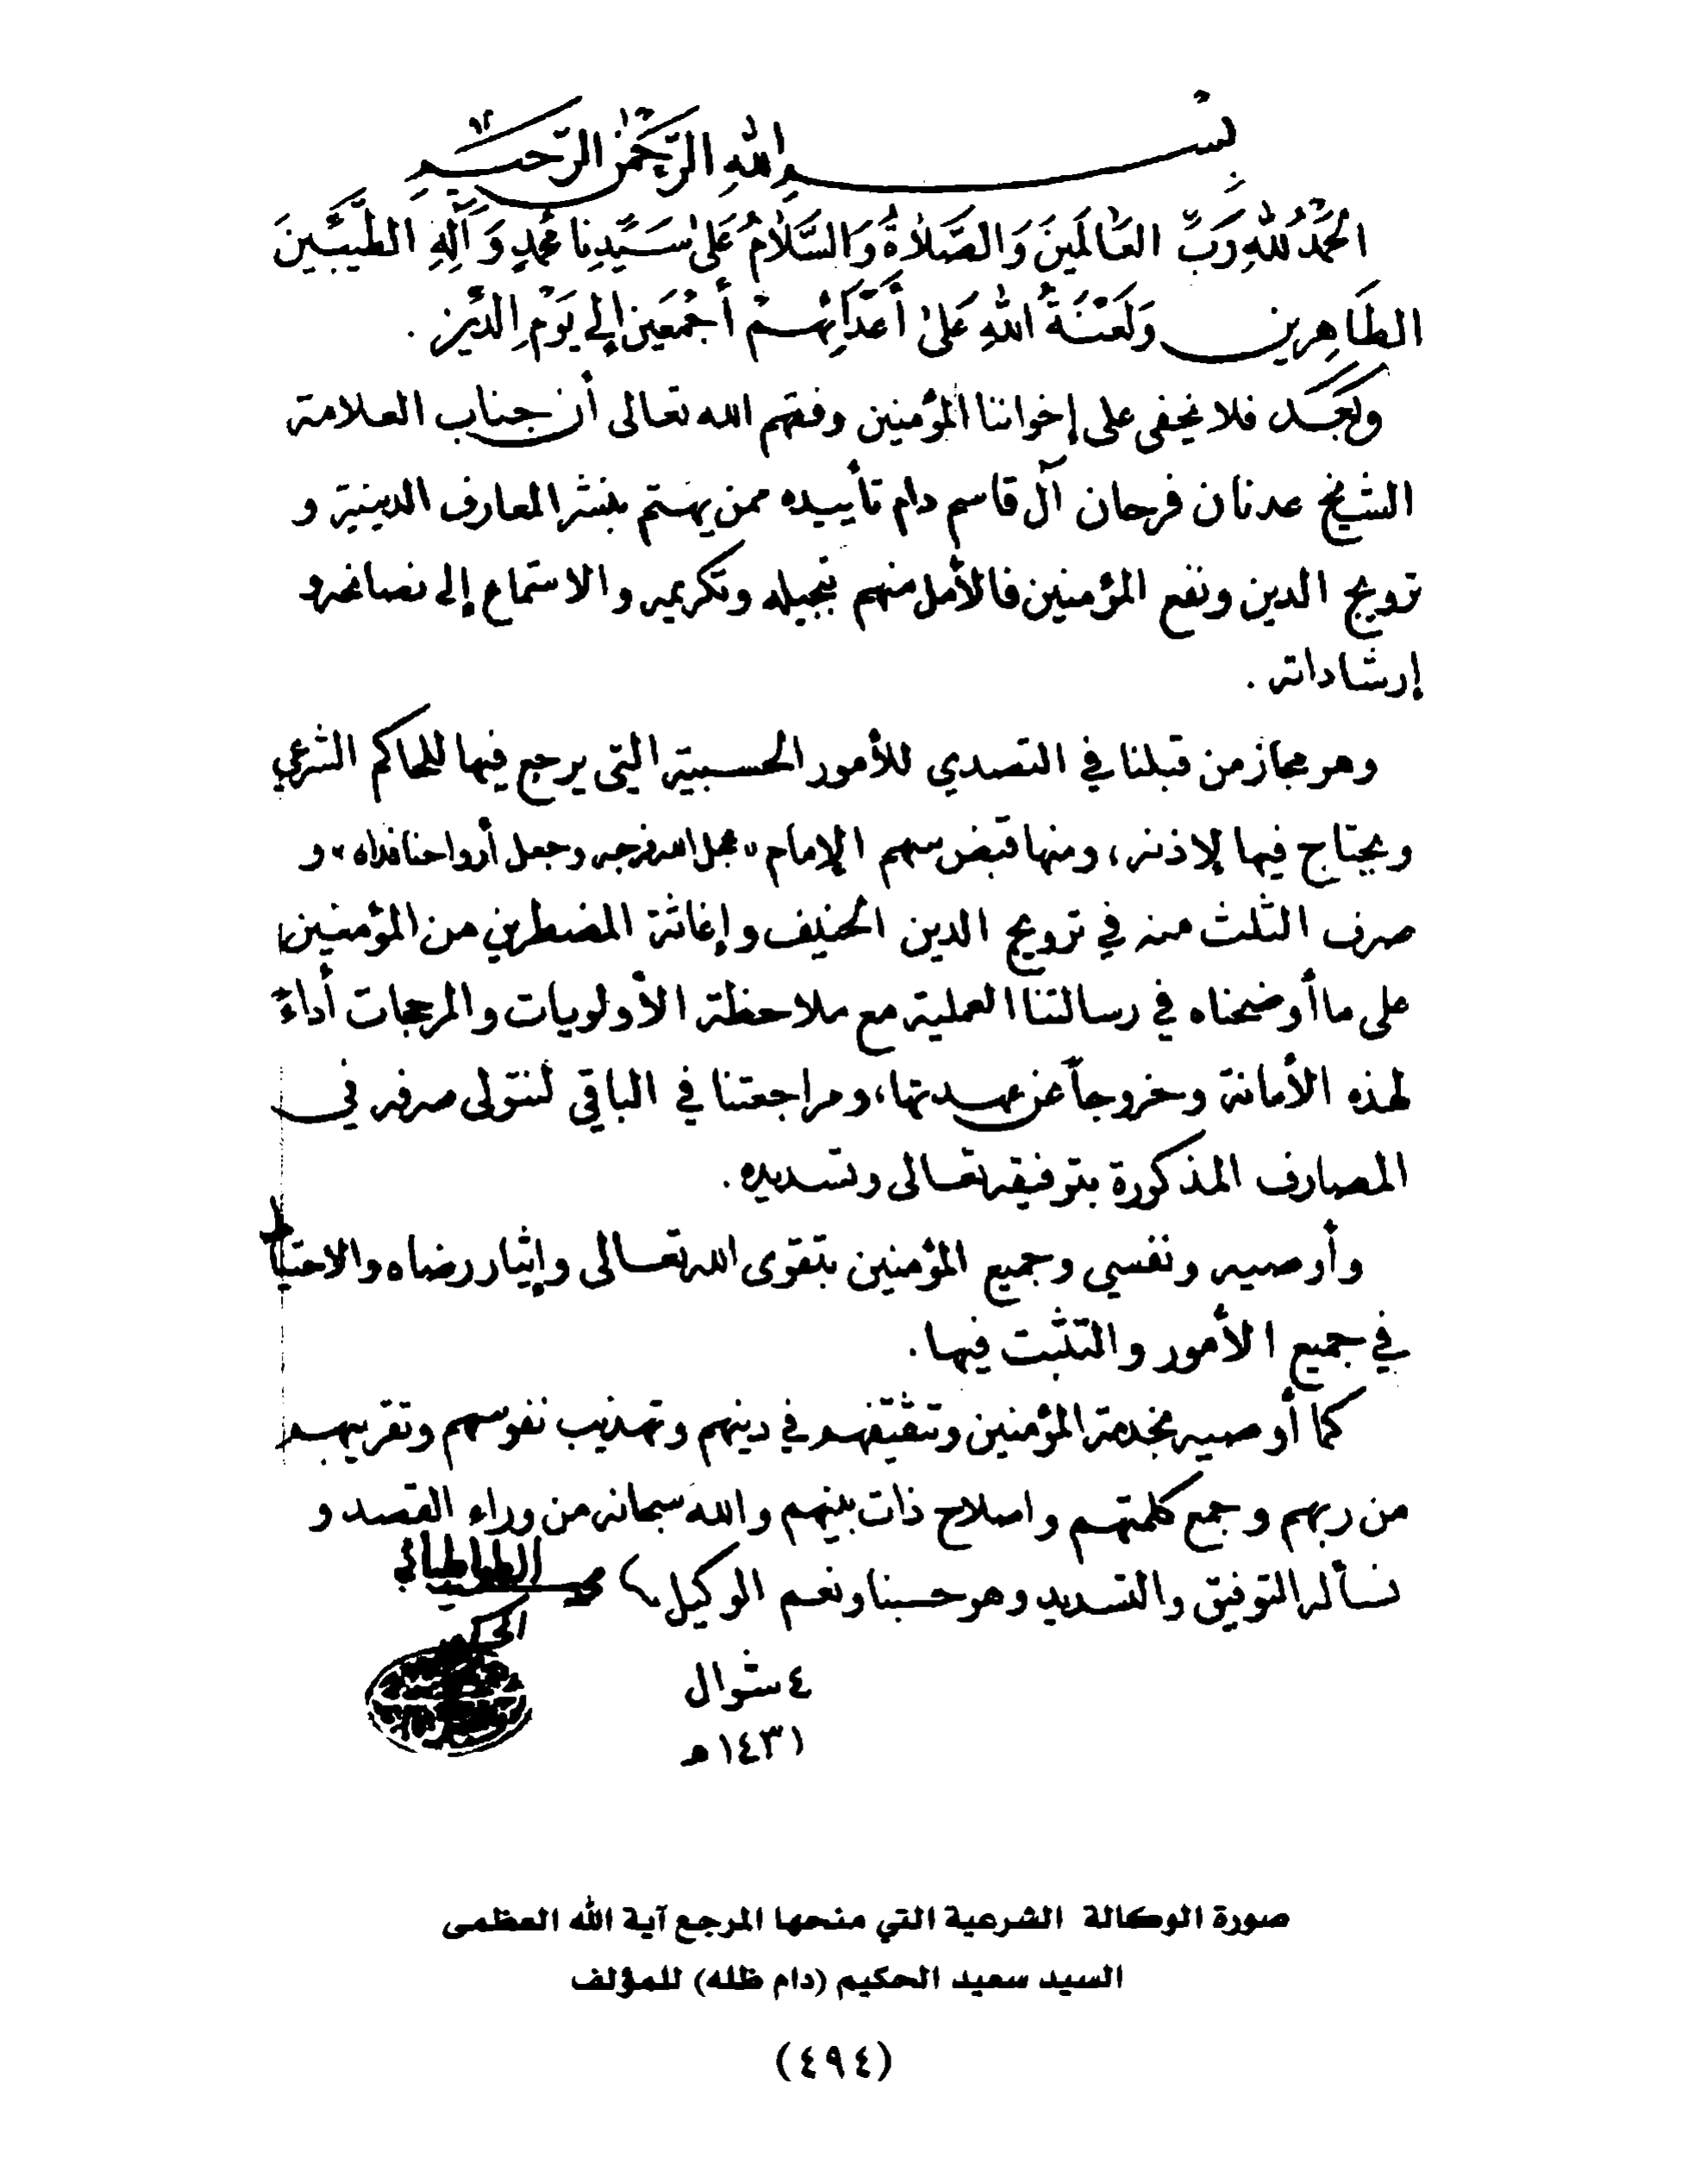 بسم الله الرحمن الرحيم
الحَمْدُ للهِ رَبِّ العَالَمِينَ وَالصَّلاٰةُ وَالسَّلاٰمُ عَلىٰ سَيِّدِنا مُحَمَّدٍ وَآلِهِ الطَّيِّبِينَ
الطَاهِرين وَلَعْنَةُ اللهِ عَلىٰ أَعْدَائِهِمْ أَجْمَعِين إلى يَوْمِ الدِّين .
وبَعْد فلا يخفى على إخواننا المؤمنين وفقهم الله تعالى أن جناب العلامة
الشيخ عدنان فرحان آل قاسم دام تأييده ممن يهتم بنشر المعارف الدينية و
ترويج الدين ونفع المؤمنين فالأمل منهم تبجيله وتكريمه والاستماع إلى نصائحه و
إرشاداته .
وهو مجاز من قبلنا في التصدي للأمور الحسبية التي يرجع فيها للحاكم الشرعي
ويحتاج فيها لإذنه، ومنها قبض سهم الإمام «عجل الله فرجه وجعل أرواحنا فداه» و
صرف الثلث منه في ترويج الدين الحنيف وإغاثة المضطرين من المؤمنين
على ما أوضحناه في رسالتنا العملية مع ملاحظة الأولويات والمرجحات أداءً
لهذه الأمانة وخروجاً عن عهدتها، ومراجعتنا في الباقي لنتولى صرفه في
المصارف المذكورة بتوفيقه تعالى وتسديده .
وأوصيه ونفسي وجميع المؤمنين بتقوى الله تعالى وإيثار رضاه والاحتياط
في جميع الأمور والتثبت فيها .
كما أوصيه بخدمة المؤمنين وتثقيفهم في دينهم وتهذيب نفوسهم وتقريبهم
من ربهم وجمع كلمتهم واصلاح ذات بينهم والله سبحانه من وراء القصد و
نسأله التوفيق والتسديد وهو حسبنا ونعم الوكيل
محمد سعيد الطباطبائي
الحكيم
٤ شوال
١٤٣١ هـ
صورة الوكالة الشرعية التي منحها المرجع آية الله العظمى
السيد سعيد الحكيم (دام ظله) للمؤلف
(٤٩٤)